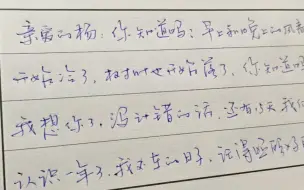 亲爱的杨：你知道吗？早上和晚上的风都
开始冷了，树叶也开始落了，你知道吗
我想你了，没计错的话，还有5天我们
认识一年了，我不在的日子，记得照顾好